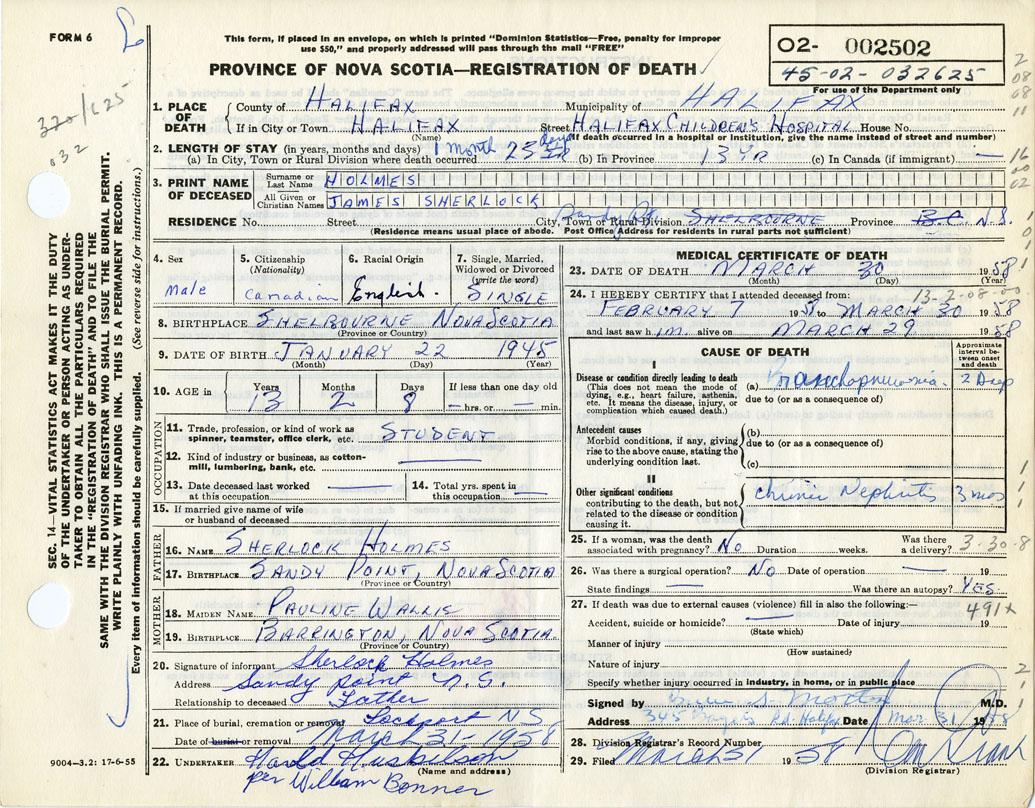 FORM 6
This form, if placed in an envelope, on which is printed "Dominion Statistics—Free, penalty for improper
use $50," and properly addressed will pass through the mail "FREE"
PROVINCE OF NOVA SCOTIA—REGISTRATION OF DEATH
O2- 002502
45-02-032625
For use of the Department only
032
1. PLACE OF DEATH
County of HALIFAX Municipality of HALIFAX
If in City or Town HALIFAX Street HALIFAX CHILDREN'S HOSPITAL House No.
(Name) (If death occurred in a hospital or Institution, give the name instead of street and number)
2. LENGTH OF STAY (in years, months and days) 1 month 23 days
(a) In City, Town or Rural Division where death occurred (b) In Province 13 YR (c) In Canada (if immigrant) —
3. PRINT NAME OF DECEASED
Surname or Last Name HOLMES
All Given or Christian Names JAMES SHERLOCK
RESIDENCE No. Street City, Town or Rural Division Sandy Pt. SHELBOURNE Province B.C. N.S.
(Residence means usual place of abode. Post Office Address for residents in rural parts not sufficient)
4. Sex
Male
5. Citizenship
(Nationality)
Canadian
6. Racial Origin
English.
7. Single, Married, Widowed or Divorced
(write the word)
SINGLE
8. BIRTHPLACE SHELBOURNE NOVA SCOTIA
(Province or Country)
9. DATE OF BIRTH JANUARY 22 1945
(Month) (Day) (Year)
10. AGE in Years 13 Months 2 Days 8 If less than one day old
— hrs. or — min.
OCCUPATION
11. Trade, profession, or kind of work as spinner, teamster, office clerk, etc. STUDENT
12. Kind of industry or business, as cotton-mill, lumbering, bank, etc. —
13. Date deceased last worked at this occupation —
14. Total yrs. spent in this occupation —
15. If married give name of wife or husband of deceased
FATHER
16. NAME SHERLOCK HOLMES
17. BIRTHPLACE SANDY POINT, NOVA SCOTIA
(Province or Country)
MOTHER
18. MAIDEN NAME PAULINE WALLIS
19. BIRTHPLACE BARRINGTON, NOVA SCOTIA
(Province or Country)
20. Signature of informant Sherlock Holmes
Address Sandy Point N.S.
Relationship to deceased Father
21. Place of burial, cremation or removal Lockport NS
Date of burial or removal March 31-1958
22. UNDERTAKER Harold Huskilson
(Name and address)
per William Bonner
9004—3.2: 17-6-55
MEDICAL CERTIFICATE OF DEATH
23. DATE OF DEATH MARCH 30 1958
(Month) (Day) (Year)
24. I HEREBY CERTIFY that I attended deceased from: 13-2-08-00
FEBRUARY 7 19 to MARCH 30 1958
and last saw him alive on MARCH 29 1958
CAUSE OF DEATH
Approximate interval between onset and death
I
Disease or condition directly leading to death
(This does not mean the mode of dying, e.g., heart failure, asthenia, etc. It means the disease, injury, or complication which caused death.)
(a) Bronchopneumonia. 2 Days
due to (or as a consequence of)
Antecedent causes
Morbid conditions, if any, giving rise to the above cause, stating the underlying condition last.
(b)
due to (or as a consequence of)
(c)
II
Other significant conditions
contributing to the death, but not related to the disease or condition causing it.
chronic Nephritis 3 mos
25. If a woman, was the death associated with pregnancy? NO Duration weeks. Was there a delivery? 3-30-8
26. Was there a surgical operation? NO Date of operation — 19
State findings — Was there an autopsy? YES
27. If death was due to external causes (violence) fill in also the following:— 491x
Accident, suicide or homicide? — Date of injury 19
(State which)
Manner of injury
(How sustained)
Nature of injury
Specify whether injury occurred in industry, in home, or in public place
Signed by M.D.
Address 345 Rd. Halifax Date Mar 31 1958
28. Division Registrar's Record Number
29. Filed March 31 1958
(Division Registrar)
SEC. 14—VITAL STATISTICS ACT MAKES IT THE DUTY
OF THE UNDERTAKER OR PERSON ACTING AS UNDER-
TAKER TO OBTAIN ALL THE PARTICULARS REQUIRED
IN THE "REGISTRATION OF DEATH" AND TO FILE THE
SAME WITH THE DIVISION REGISTRAR WHO SHALL ISSUE THE BURIAL PERMIT.
WRITE PLAINLY WITH UNFADING INK. THIS IS A PERMANENT RECORD.
Every item of information should be carefully supplied. (See reverse side for instructions.)